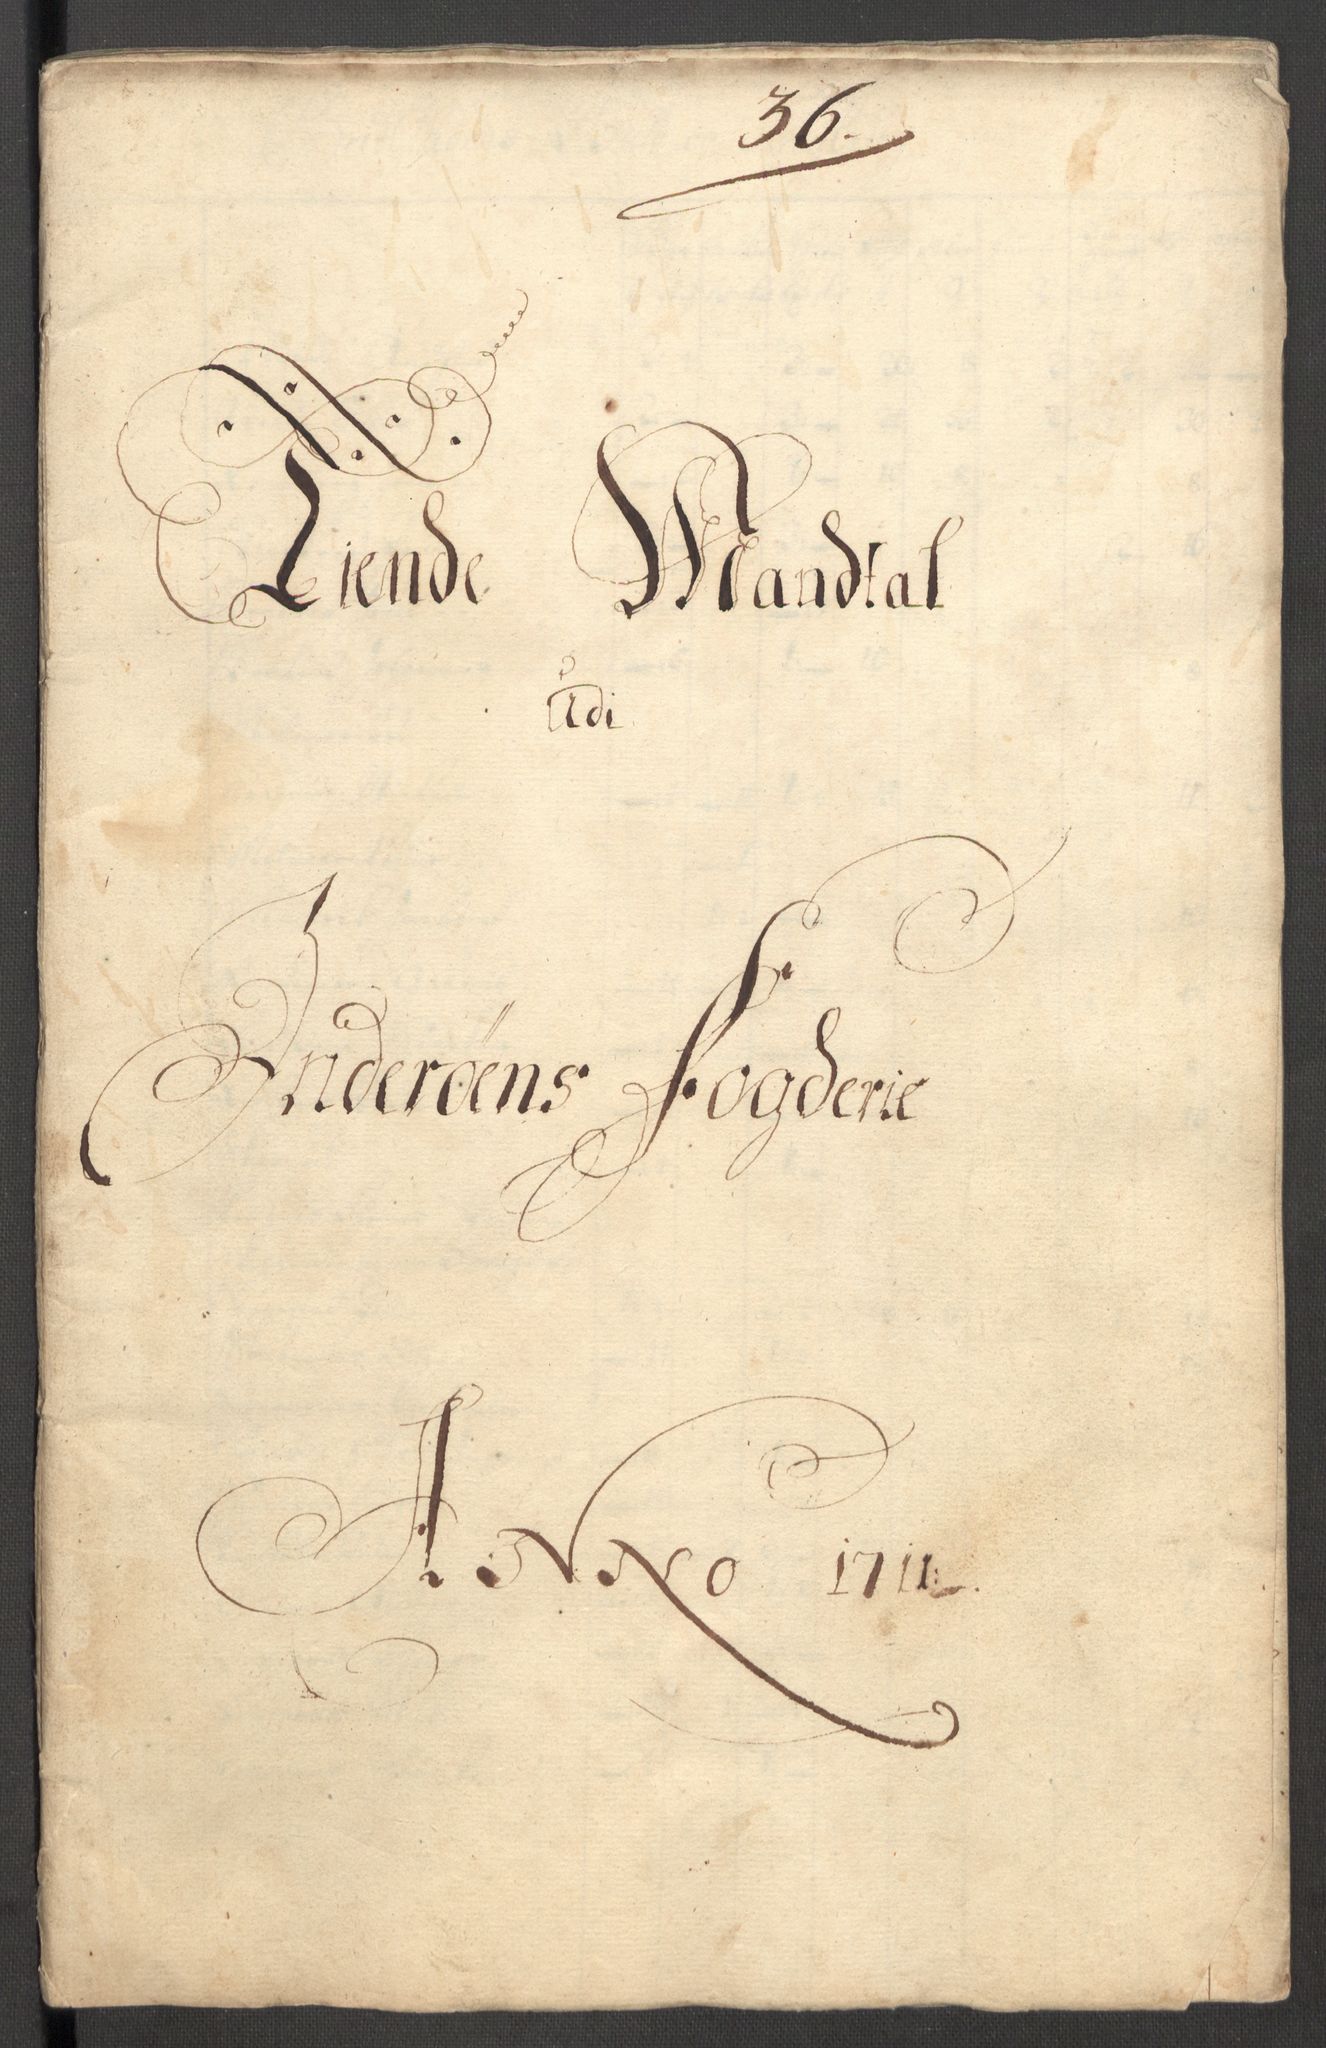 36.
Tiende Mandtal
Udi
Inderøens Fogderie
Anno 1711.